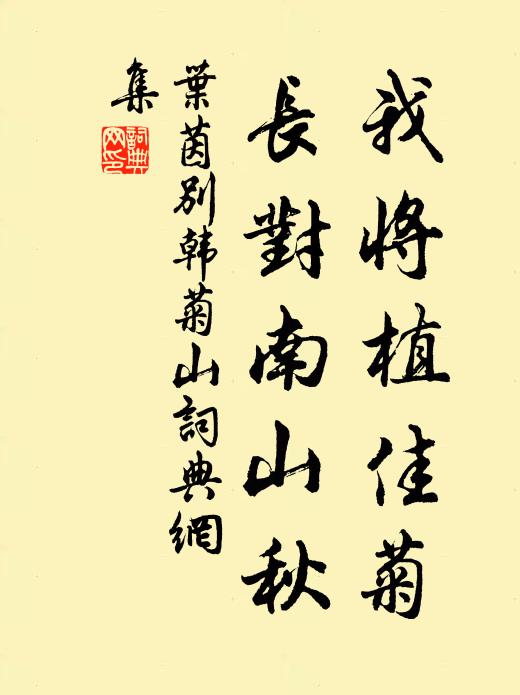 我將植佳菊
長對南山秋
葉茵別韩菊山詞典網
集
詞典網印